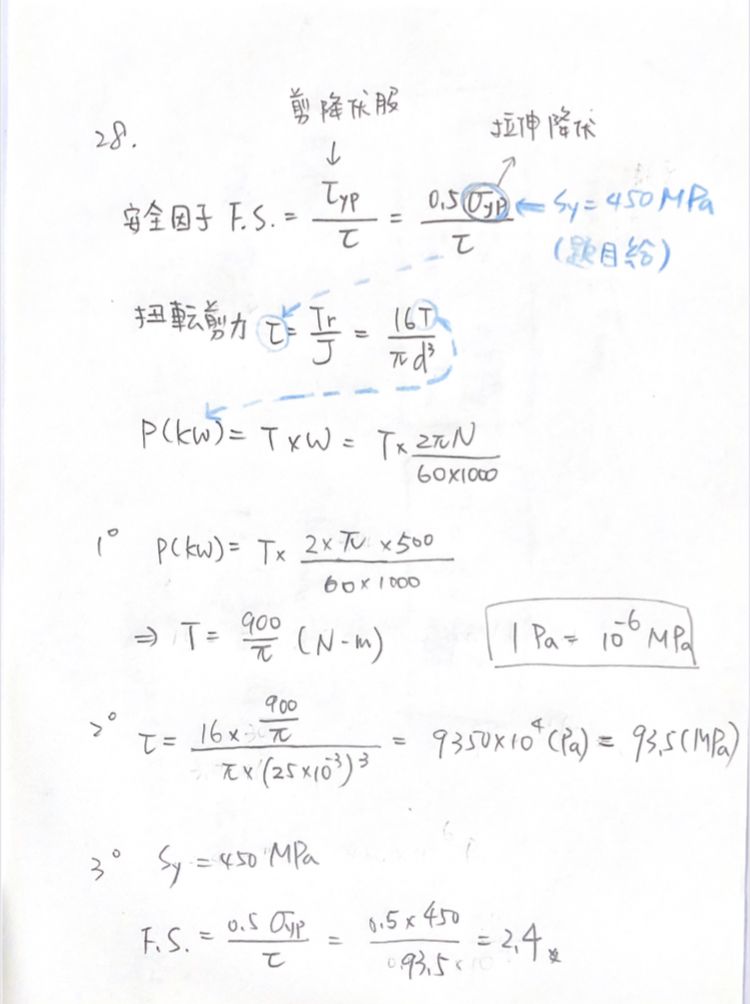 剪降伏服
拉伸降伏
28.
安全因子 F.S. = τyp / τ = 0.5 σyp / τ ← Sy = 450 MPa
(題目給)
扭転剪力 τ = Tr / J = 16T / πd³
P(kw) = T×W = T× 2πN / 60×1000
1° P(kw) = T× 2×π×500 / 60×1000
⇒ T = 900/π (N-m)
1 Pa = 10⁻⁶ MPa
2° τ = 16× 900/π / π×(25×10⁻³)³ = 9350×10⁴(Pa) = 93.5(MPa)
3° Sy = 450 MPa
F.S. = 0.5 σyp / τ = 0.5×450 / 93.5 = 2.4